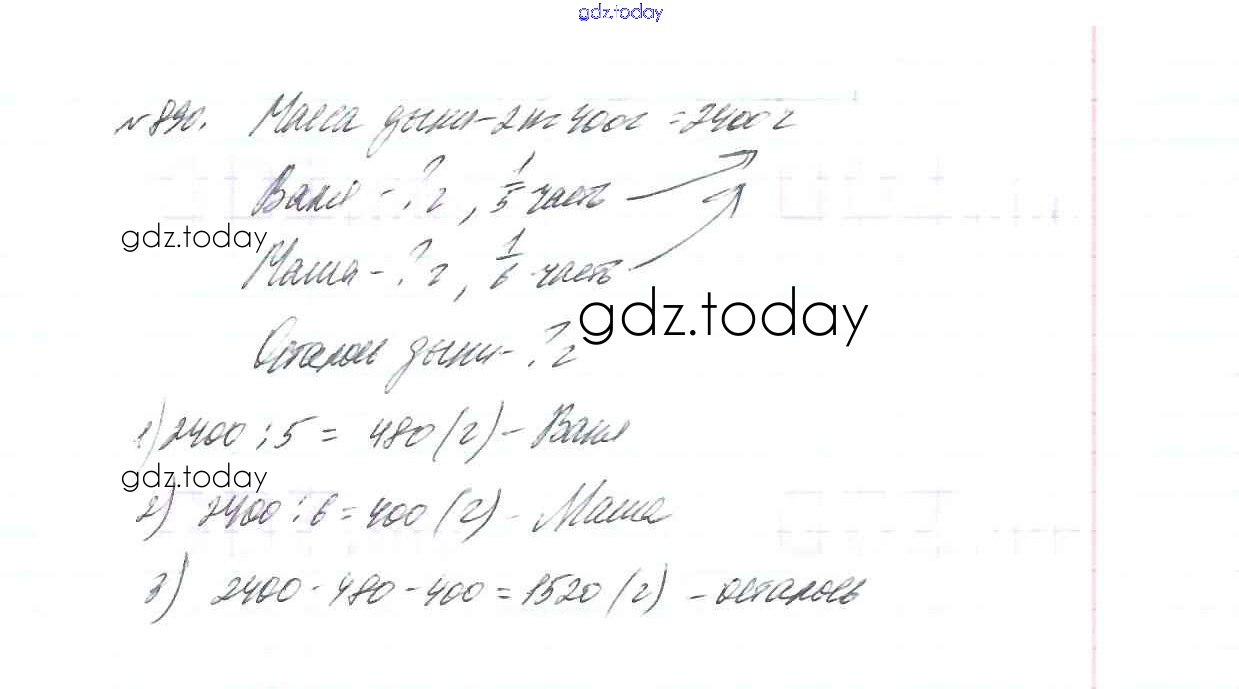 gdz.today
№ 890. Масса дыни - 2 кг 400 г = 2400 г
Ваня - ? г, 1/5 часть
gdz.today
Маша - ? г, 1/6 часть
gdz.today
Осталось дыни - ? г
1) 2400 : 5 = 480 (г) - Ваня
gdz.today
2) 2400 : 6 = 400 (г) - Маша
3) 2400 - 480 - 400 = 1520 (г) - осталось